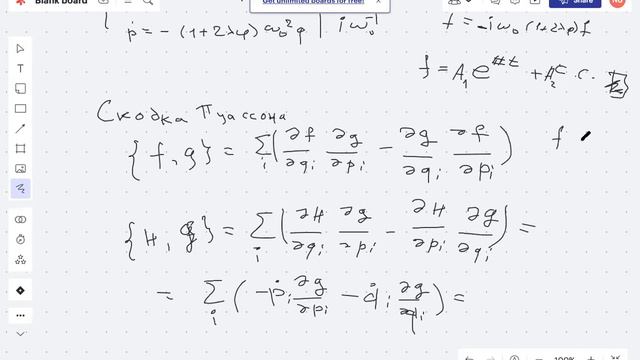 Blank board
Get unlimited boards for free!
Share
ṗ = - (1+2λφ) ω₀² q | iω₀⁻¹
ḟ = -iω₀ (1+2λφ) f
Скобка Пуассона
{f, g} = Σᵢ (∂f/∂qᵢ ∂g/∂pᵢ - ∂g/∂qᵢ ∂f/∂pᵢ) f
{H, g} = Σᵢ (∂H/∂qᵢ ∂g/∂pᵢ - ∂H/∂pᵢ ∂g/∂qᵢ) =
= Σᵢ (-ṗᵢ ∂g/∂pᵢ - q̇ᵢ ∂g/∂qᵢ) =
100%